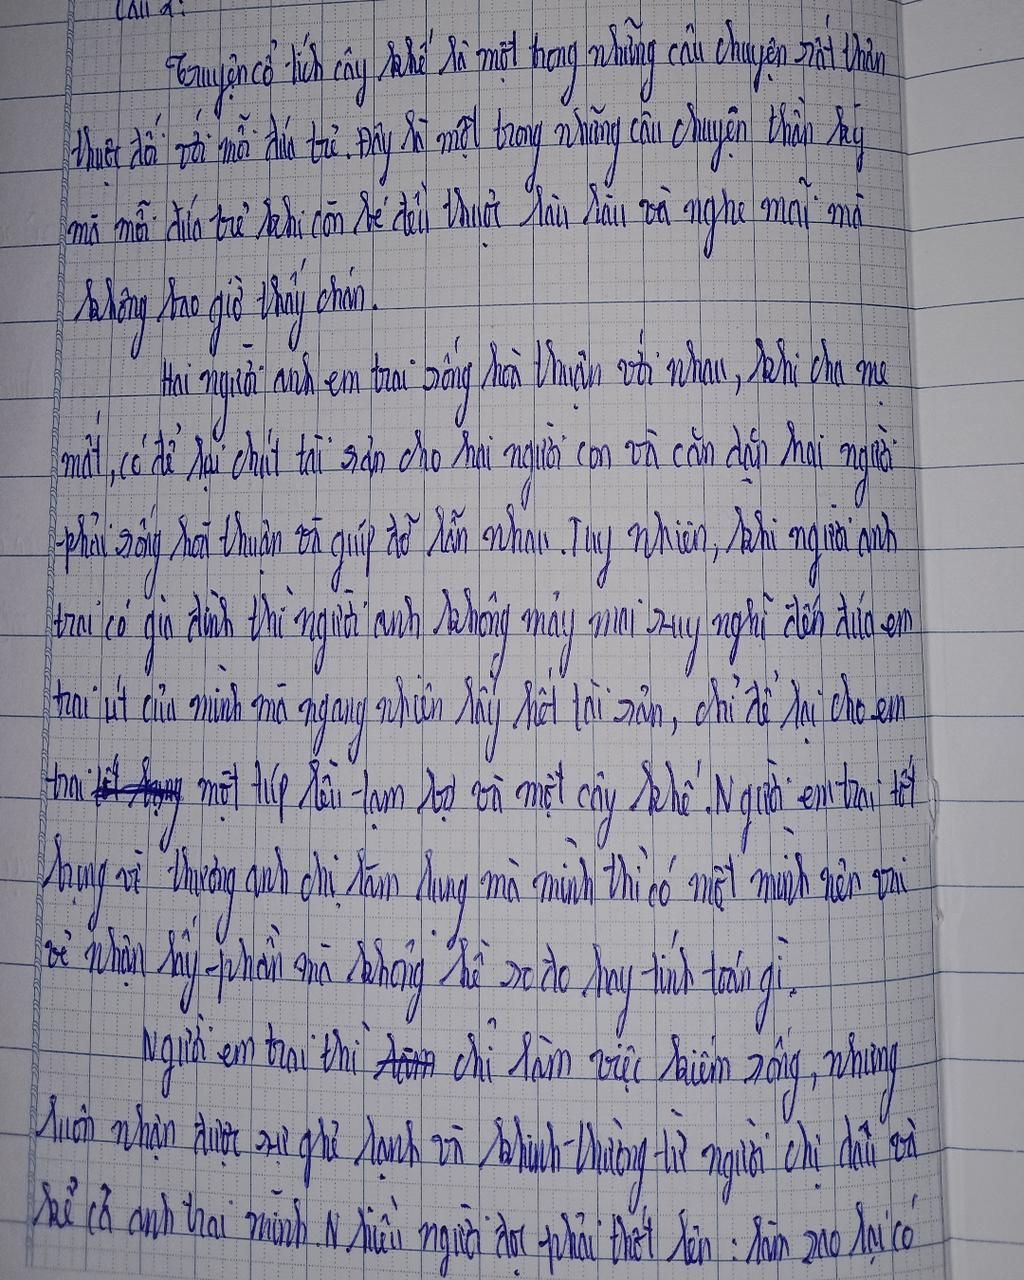 Câu 2:
Truyện cổ tích cây khế là một trong những câu chuyện rất thân
thuộc đối với mỗi đứa trẻ. Đây là một trong những câu chuyện thần kỳ
mà mỗi đứa trẻ khi còn bé đều thuở làu làu và nghe mãi mà
không bao giờ thấy chán.
Hai người anh em trai sống hoà thuận với nhau, khi cha mẹ
mất, có để lại chút tài sản cho hai người con và căn dặn hai người
phải sống hoà thuận và giúp đỡ lẫn nhau. Tuy nhiên, khi người anh
trai có gia đình thì người anh không mảy mai suy nghĩ đến đứa em
trai út của mình mà ngang nhiên lấy hết tài sản, chỉ để lại cho em
trai một túp lều tạm bợ và một cây khế. Người em trai tốt
bụng vì thương anh chị làm lụng mà mình thì có một mình nên vui
vẻ nhận lấy phần mà không hề so đo hay tính toán gì.
Người em trai thì chỉ làm việc kiếm sống, nhưng
luôn nhận được sự ghẻ lạnh và khinh thường từ người chị dâu và
kể cả anh trai mình. Nhiều người đọc phải thốt lên: làm sao lại có